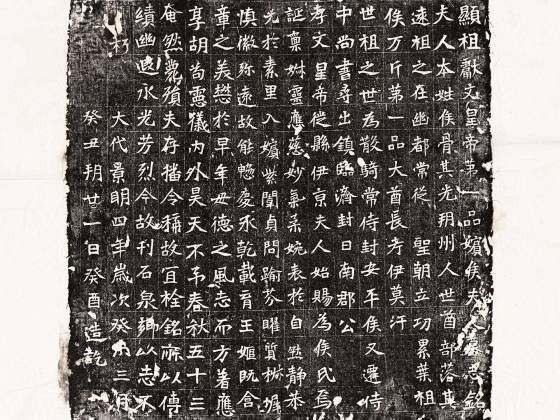 顯祖獻文皇帝第一品嬪侯夫人墓志銘
夫人本姓侯骨其先朔州人世酋部落其
遠祖之在幽都常從 聖朝立功累葉祖
俟万斤第一品大酋長考伊莫汗
世祖之世為散騎常侍封安平侯又遷侍
中尚書尋出鎮臨濟封日南郡公
孝文皇帝徙縣伊京夫人始賜為侯氏焉
誕稟姝靈應慈妙氣柔婉表於自然靜恭
光於素里入嬪紫闈貞問踰芬曜質椒墀
慎徽弥遠故能憩慶承乾載育王姬既含
章之美懋於早年毋德之風志而方著應
享胡耇靈儀內外昊天不弔春秋五十三
奄然薨殞夫存播令稱故宜栓銘庥以傳
績幽遐永光芳烈今故刊石泉鄉以志不
朽 大代景明四年歲次癸未三月
癸丑朔廿一日癸酉造訖